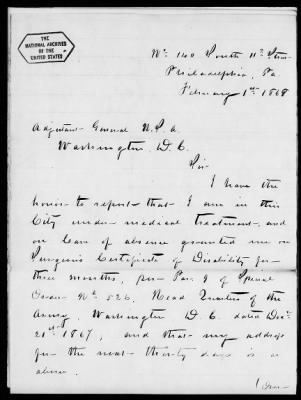 THE
NATIONAL ARCHIVES
OF THE
UNITED STATES
No 140 South 11th Street
Philadelphia, Pa.
February 1st 1868
Adjutant General U.S.A.
Washington, D.C.
Sir
I have the
honor to report that I am in this
City under medical treatment, and
on leave of absence granted me on
Surgeon's Certificate of Disability for
three months, per Par. 9 of Special
Order No 526. Head Quarters of the
Army, Washington D.C. dated Dec.
21st 1867, and that my address
for the next thirty days is as
above.
(Over